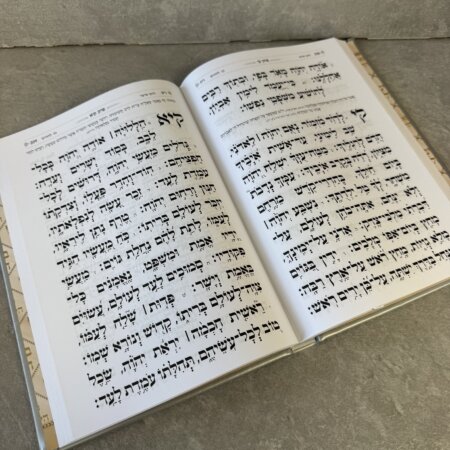 אוֹדֶה יְהֹוָה מְאֹד בְּפִי, וּבְתוֹךְ רַבִּים
אֲהַלְלֶנּוּ: כִּי יַעֲמֹד לִימִין אֶבְיוֹן,
לְהוֹשִׁיעַ מִשֹּׁפְטֵי נַפְשׁוֹ:
קי לְדָוִד מִזְמוֹר, נְאֻם יְהֹוָה | לַאדֹנִי,
שֵׁב לִימִינִי, עַד־אָשִׁית אֹיְבֶיךָ, הֲדֹם
לְרַגְלֶיךָ: מַטֵּה עֻזְּךָ יִשְׁלַח יְהֹוָה מִצִּיּוֹן,
רְדֵה בְּקֶרֶב אֹיְבֶיךָ: עַמְּךָ נְדָבֹת בְּיוֹם
חֵילֶךָ, בְּהַדְרֵי־קֹדֶשׁ, מֵרֶחֶם מִשְׁחָר, לְךָ
טַל יַלְדֻתֶיךָ: נִשְׁבַּע יְהֹוָה | וְלֹא יִנָּחֵם,
אַתָּה־כֹהֵן לְעוֹלָם, עַל־דִּבְרָתִי
מַלְכִּי־צֶדֶק: אֲדֹנָי עַל־יְמִינְךָ, מָחַץ
בְּיוֹם־אַפּוֹ מְלָכִים: יָדִין בַּגּוֹיִם
מָלֵא גְוִיּוֹת, מָחַץ רֹאשׁ עַל־אֶרֶץ רַבָּה:
מִנַּחַל בַּדֶּרֶךְ יִשְׁתֶּה, עַל־כֵּן יָרִים רֹאשׁ:
קיא הַלְלוּיָהּ | אוֹדֶה יְהֹוָה בְּכָל־
לֵבָב, בְּסוֹד יְשָׁרִים וְעֵדָה:
גְּדֹלִים מַעֲשֵׂי יְהֹוָה, דְּרוּשִׁים לְכָל־
חֶפְצֵיהֶם: הוֹד־וְהָדָר פָּעֳלוֹ, וְצִדְקָתוֹ
עֹמֶדֶת לָעַד: זֵכֶר עָשָׂה לְנִפְלְאֹתָיו,
חַנּוּן וְרַחוּם יְהֹוָה: טֶרֶף נָתַן לִירֵאָיו,
יִזְכֹּר לְעוֹלָם בְּרִיתוֹ: כֹּחַ מַעֲשָׂיו הִגִּיד
לְעַמּוֹ, לָתֵת לָהֶם נַחֲלַת גּוֹיִם: מַעֲשֵׂי
יָדָיו אֱמֶת וּמִשְׁפָּט, נֶאֱמָנִים כָּל־
פִּקּוּדָיו: סְמוּכִים לָעַד לְעוֹלָם, עֲשׂוּיִם
בֶּאֱמֶת וְיָשָׁר: פְּדוּת | שָׁלַח לְעַמּוֹ,
צִוָּה־לְעוֹלָם בְּרִיתוֹ, קָדוֹשׁ וְנוֹרָא שְׁמוֹ:
רֵאשִׁית חָכְמָה | יִרְאַת יְהֹוָה, שֵׂכֶל
טוֹב לְכָל־עֹשֵׂיהֶם, תְּהִלָּתוֹ עֹמֶדֶת לָעַד: